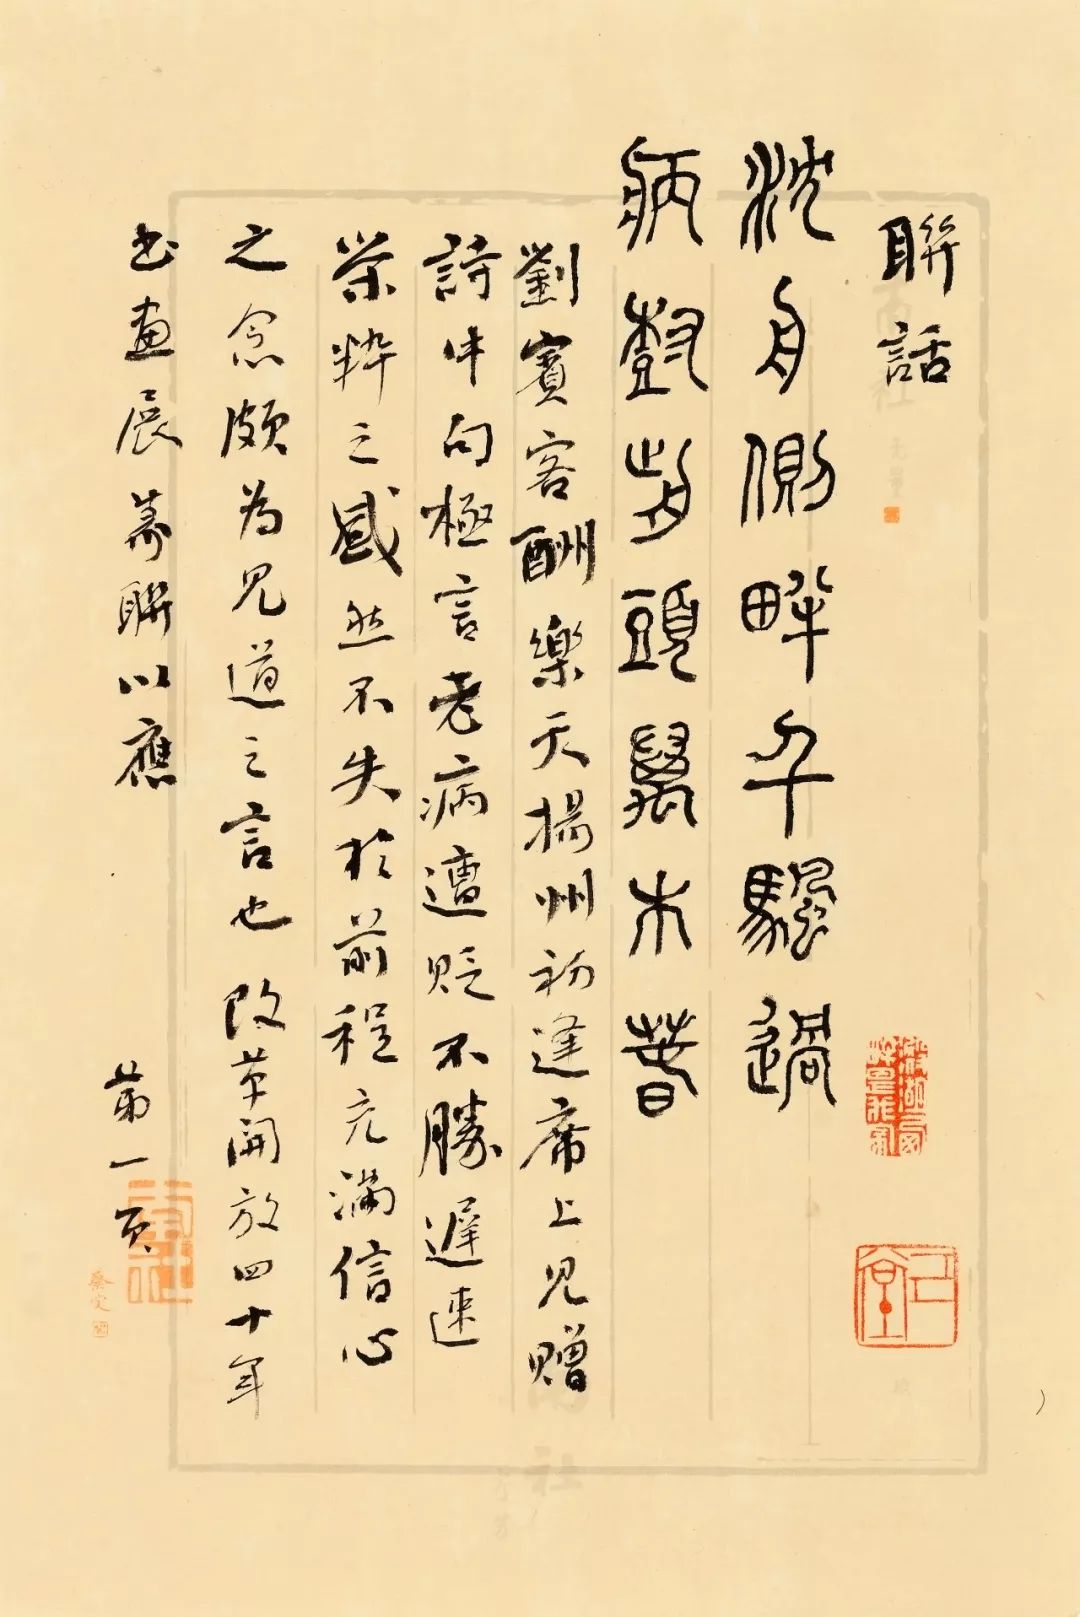 聯話
沈舟側畔千颿過
病樹前頭萬木春
劉賓客酬樂天揚州初逢席上見贈
詩中句極言老病遭貶不勝遲速
榮粹之感然不失於前程充滿信心
之念頗為見道之言也 改革開放四十年
書畫展 篆聯以應
第一頁